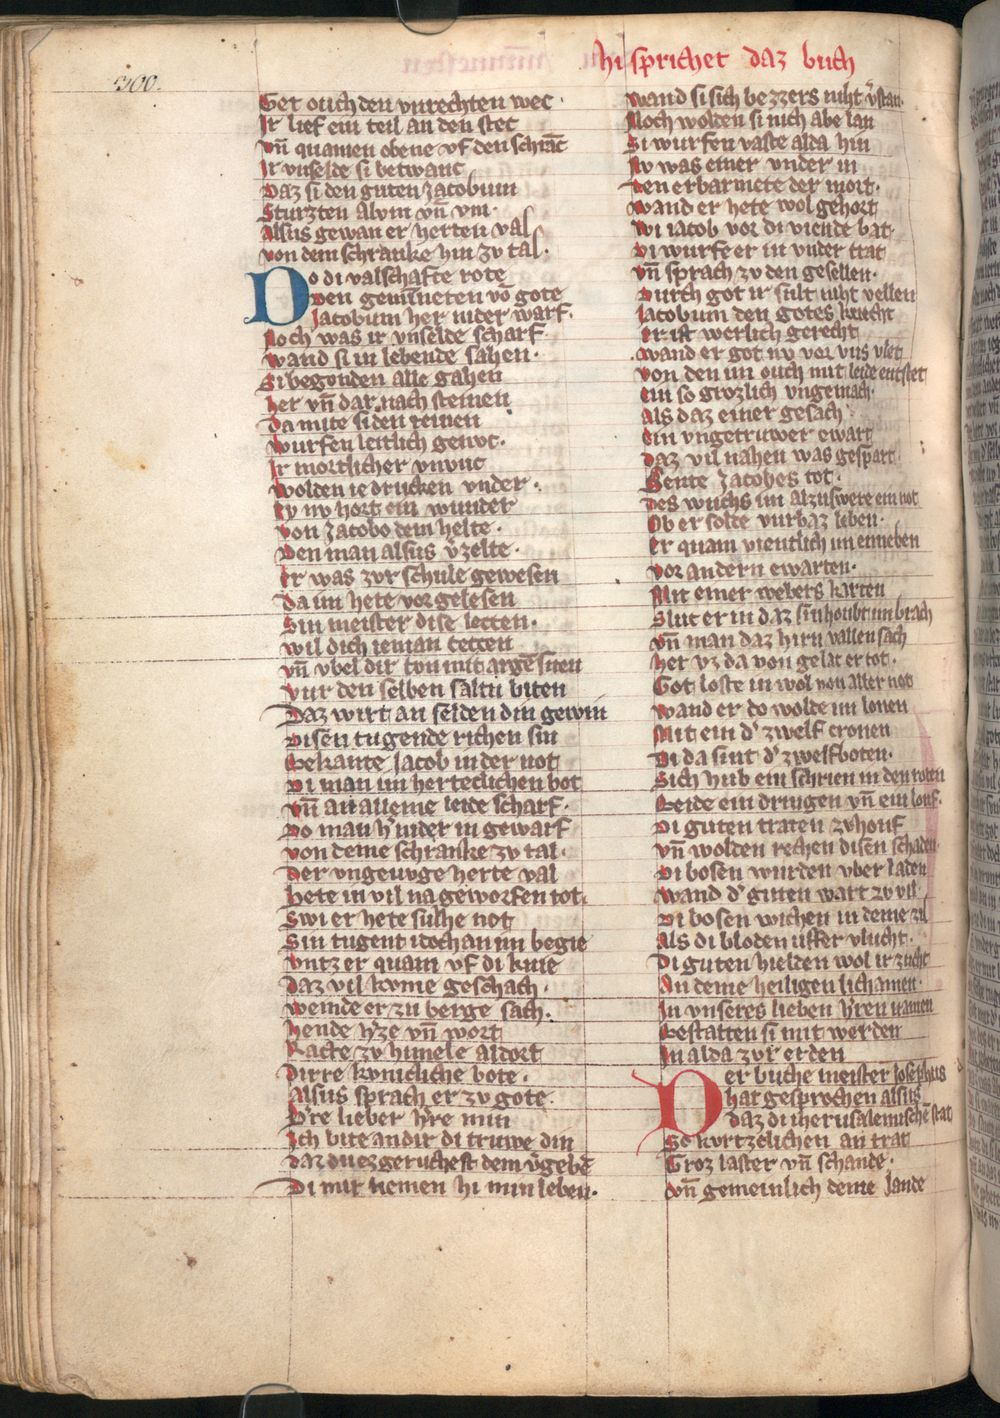 hi sprichet daz buch
300.
Get ouch den vnrechten wec ·
Ir lief ein teil an den stec
vn̄ quamen obene vf den schranc̄
Ir vnselde si betwanc
Daz si den guten Jacobum
Sturzten alvm vn̄ vm ·
Alsus gewan er herten val
von dem schranke hin zv tal ·
Do di valschafte rote
Den gemı̄neten vō gote
Jacobum her nider warf ·
Noch was ir vnselde scharf
wand si in lebende sahen ·
Si begonden alle gahen
her vn̄ dar nach steinen
da mite si den reinen
wurfen leitlich genvc ·
Ir mortlicher vnvuc
wolden ie drucken vnder ·
Ey nv hort ein wunder
von Jacobo dem helte ·
Den man alsus v̄zelte ·
Er was zvr schule gewesen
da im hete vor gelesen
Sin meister dise lecten ·
wil dich ieman tecten
vn̄ vbel dir tvn mit argē siten
vur den selben saltu biten
Daz wirt an selden din gewin
Disen tugende richen sin
Bekante Jacob in der not
Di man im herteclichen bot
vn̄ an alleme leide scharf ·
Do man h̄ nider in gewarf
von deme schranke zv tal ·
Der vngevuge herte val
hete in vil na geworfen tot ·
Swi er hete sulhe not
Sin tugent idoch an im begie
vntz er quam vf di knie
daz vil kvme geschach ·
wende er zu berge sach ·
hende h̄ze vn̄ wort
Racte zv himele aldort
Dirre kvnicliche bote ·
Alsus sprach er zv gote ·
h̄re lieber h̄re min
Ich bite an dir di truwe din
daz du ez geruchest dem v̄gebē
Di mir nemen hi min leben ·
wand si sich bezzers niht v̄stan
Noch wolden si nich abe lan
Si wurfen vaste alda hin
Nv was einer vnder in
Den erbarmete der mort ·
wand er hete wol gehort
wi iacob vor di viende bat ·
Di wurfe er in vnder trat
vn̄ sprach zv den gesellen ·
Durch got ir sult niht vellen
Jacobum den gotes knecht
Er ist werlich gerecht
wand er got nv vor vns vlet
von den im ouch mit leide entstet
ein so grozlich vngemach ·
Als daz einer gesach
Ein vngetruwer ewart
daz vil nahen was gespart
Sente Jacobes tot ·
Des wuchs im alzu swere ein not
Ob er solte vurbaz leben ·
Er quam vientlich im enneben
vor andern ewarten ·
Mit einer webers karten
Sluc er in daz sin houbt im brach
vn̄ man daz hirn vallen sach
her vz da von gelac er tot ·
Got loste in wol von aller not
wand er do wolde im lonen
Mit ein d̄ zwelf cronen
Di da sint d̄ zwelfboten ·
Sich hub ein schrien in den roten
Beide ein dringen vn̄ ein louf ·
Di guten traten zv houf
vn̄ wolden rechen disen schaden
Di bosen wurden vber laden
wand d̄ guten wart zv vil ·
Di bosen wichen in deme zil
als di bloden vffer vlucht ·
Di guten hielden wol ir zucht
An deme heiligen lichamen ·
In vnseres lieben h̄ren namen
Bestatten si mit werden
In alda zvr erden
Der buche meister Josephus
hat gesprochen alsus
daz di iherusalemischē stat
So kvrtzelichen an trat
Groz laster vn̄ schande ·
Vn̄ gemeinlich deme lande